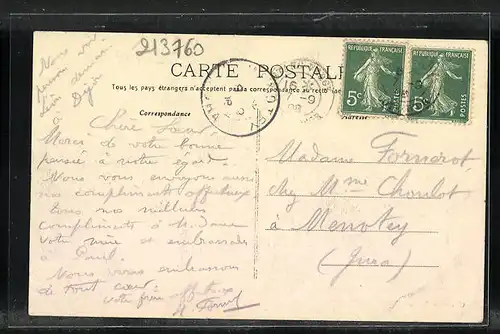 213760
CARTE POSTALE
Tous les pays étrangers n'acceptent pas la correspondance au recto
Correspondance
RÉPUBLIQUE FRANÇAISE
5c
POSTES
RÉPUBLIQUE FRANÇAISE
5c
POSTES
16
7-9
08
Nous
Dijon
Chère Sœur
Merci de votre bonne
pensée à notre égard.
Nous vous envoyons aussi
nos compliments affectueux
nos meilleurs
compliments à M.
votre mère et embrassades
à Paul.
Nous vous embrassons
de tout cœur
votre frère affectueux
Madame Fornerot
chez Mme Choulot
à Menotey
(Jura)